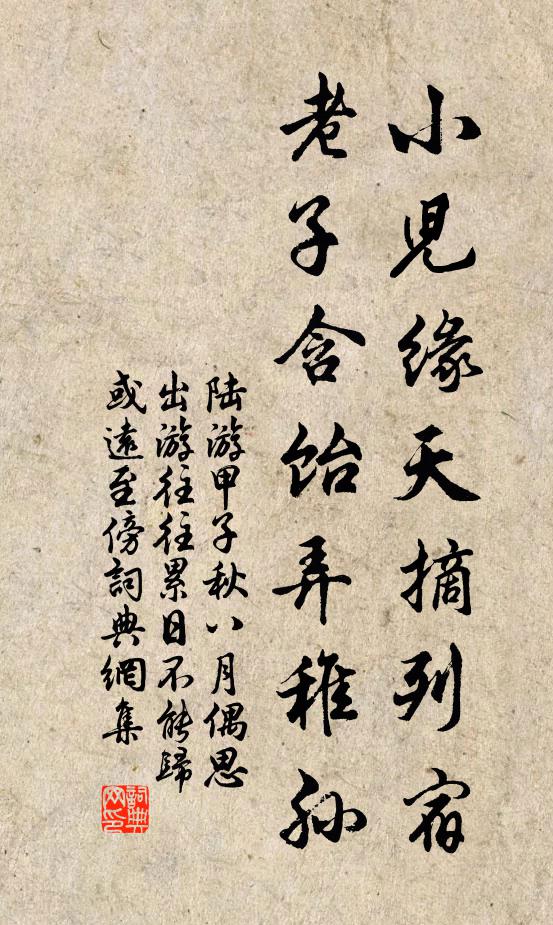 小兒緣天摘列宿
老子含飴弄稚孫
陆游甲子秋八月偶思
出游往往累日不能歸
或遠至傍詞典網集
詞典网印